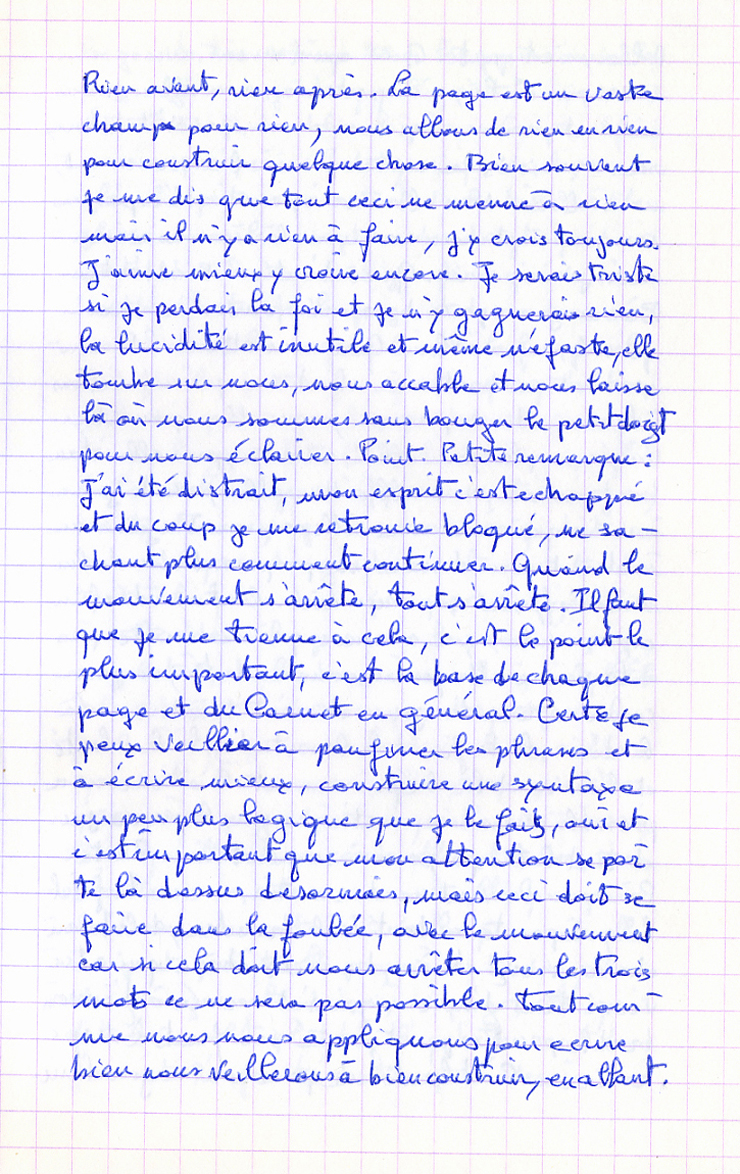 Rien avant, rien après. La page est un vaste
champ pour rien, nous allons de rien en rien
pour construir quelque chose. Bien souvent
je me dis que tout ceci ne menne à rien
mais il n'y a rien à faire, j'y crois toujours.
J'aime mieux y croire encore. Je serais triste
si je perdais la foi et je n'y gagnerais rien,
la lucidité est inutile et même néfaste, elle
tombe sur nous, nous accable et nous laisse
là où nous sommes sans bouger le petit doigt
pour nous éclairer. Point. Petite remarque :
J'ai été distrait, mon esprit s'est echappé
et du coup je me retrouve bloqué, ne sa-
chant plus comment continuer. Quand le
mouvement s'arrête, tout s'arrête. Il faut
que je me tienne à cela, c'est le point le
plus important, c'est la base de chaque
page et du Carnet en général. Certe je
peux veiller à paufiner les phrases et
à écrire mieux, construire une syntaxe
un peu plus logique que je le fais, oui et
c'est important que mon attention se por
te là dessus désormais, mais ceci doit se
faire dans la foulée, avec le mouvement
car si cela doit nous arrêter tous les trois
mots ce ne sera pas possible. Tout com-
me nous nous appliquons pour ecrire
bien nous veillerons à bien construir, en allant.